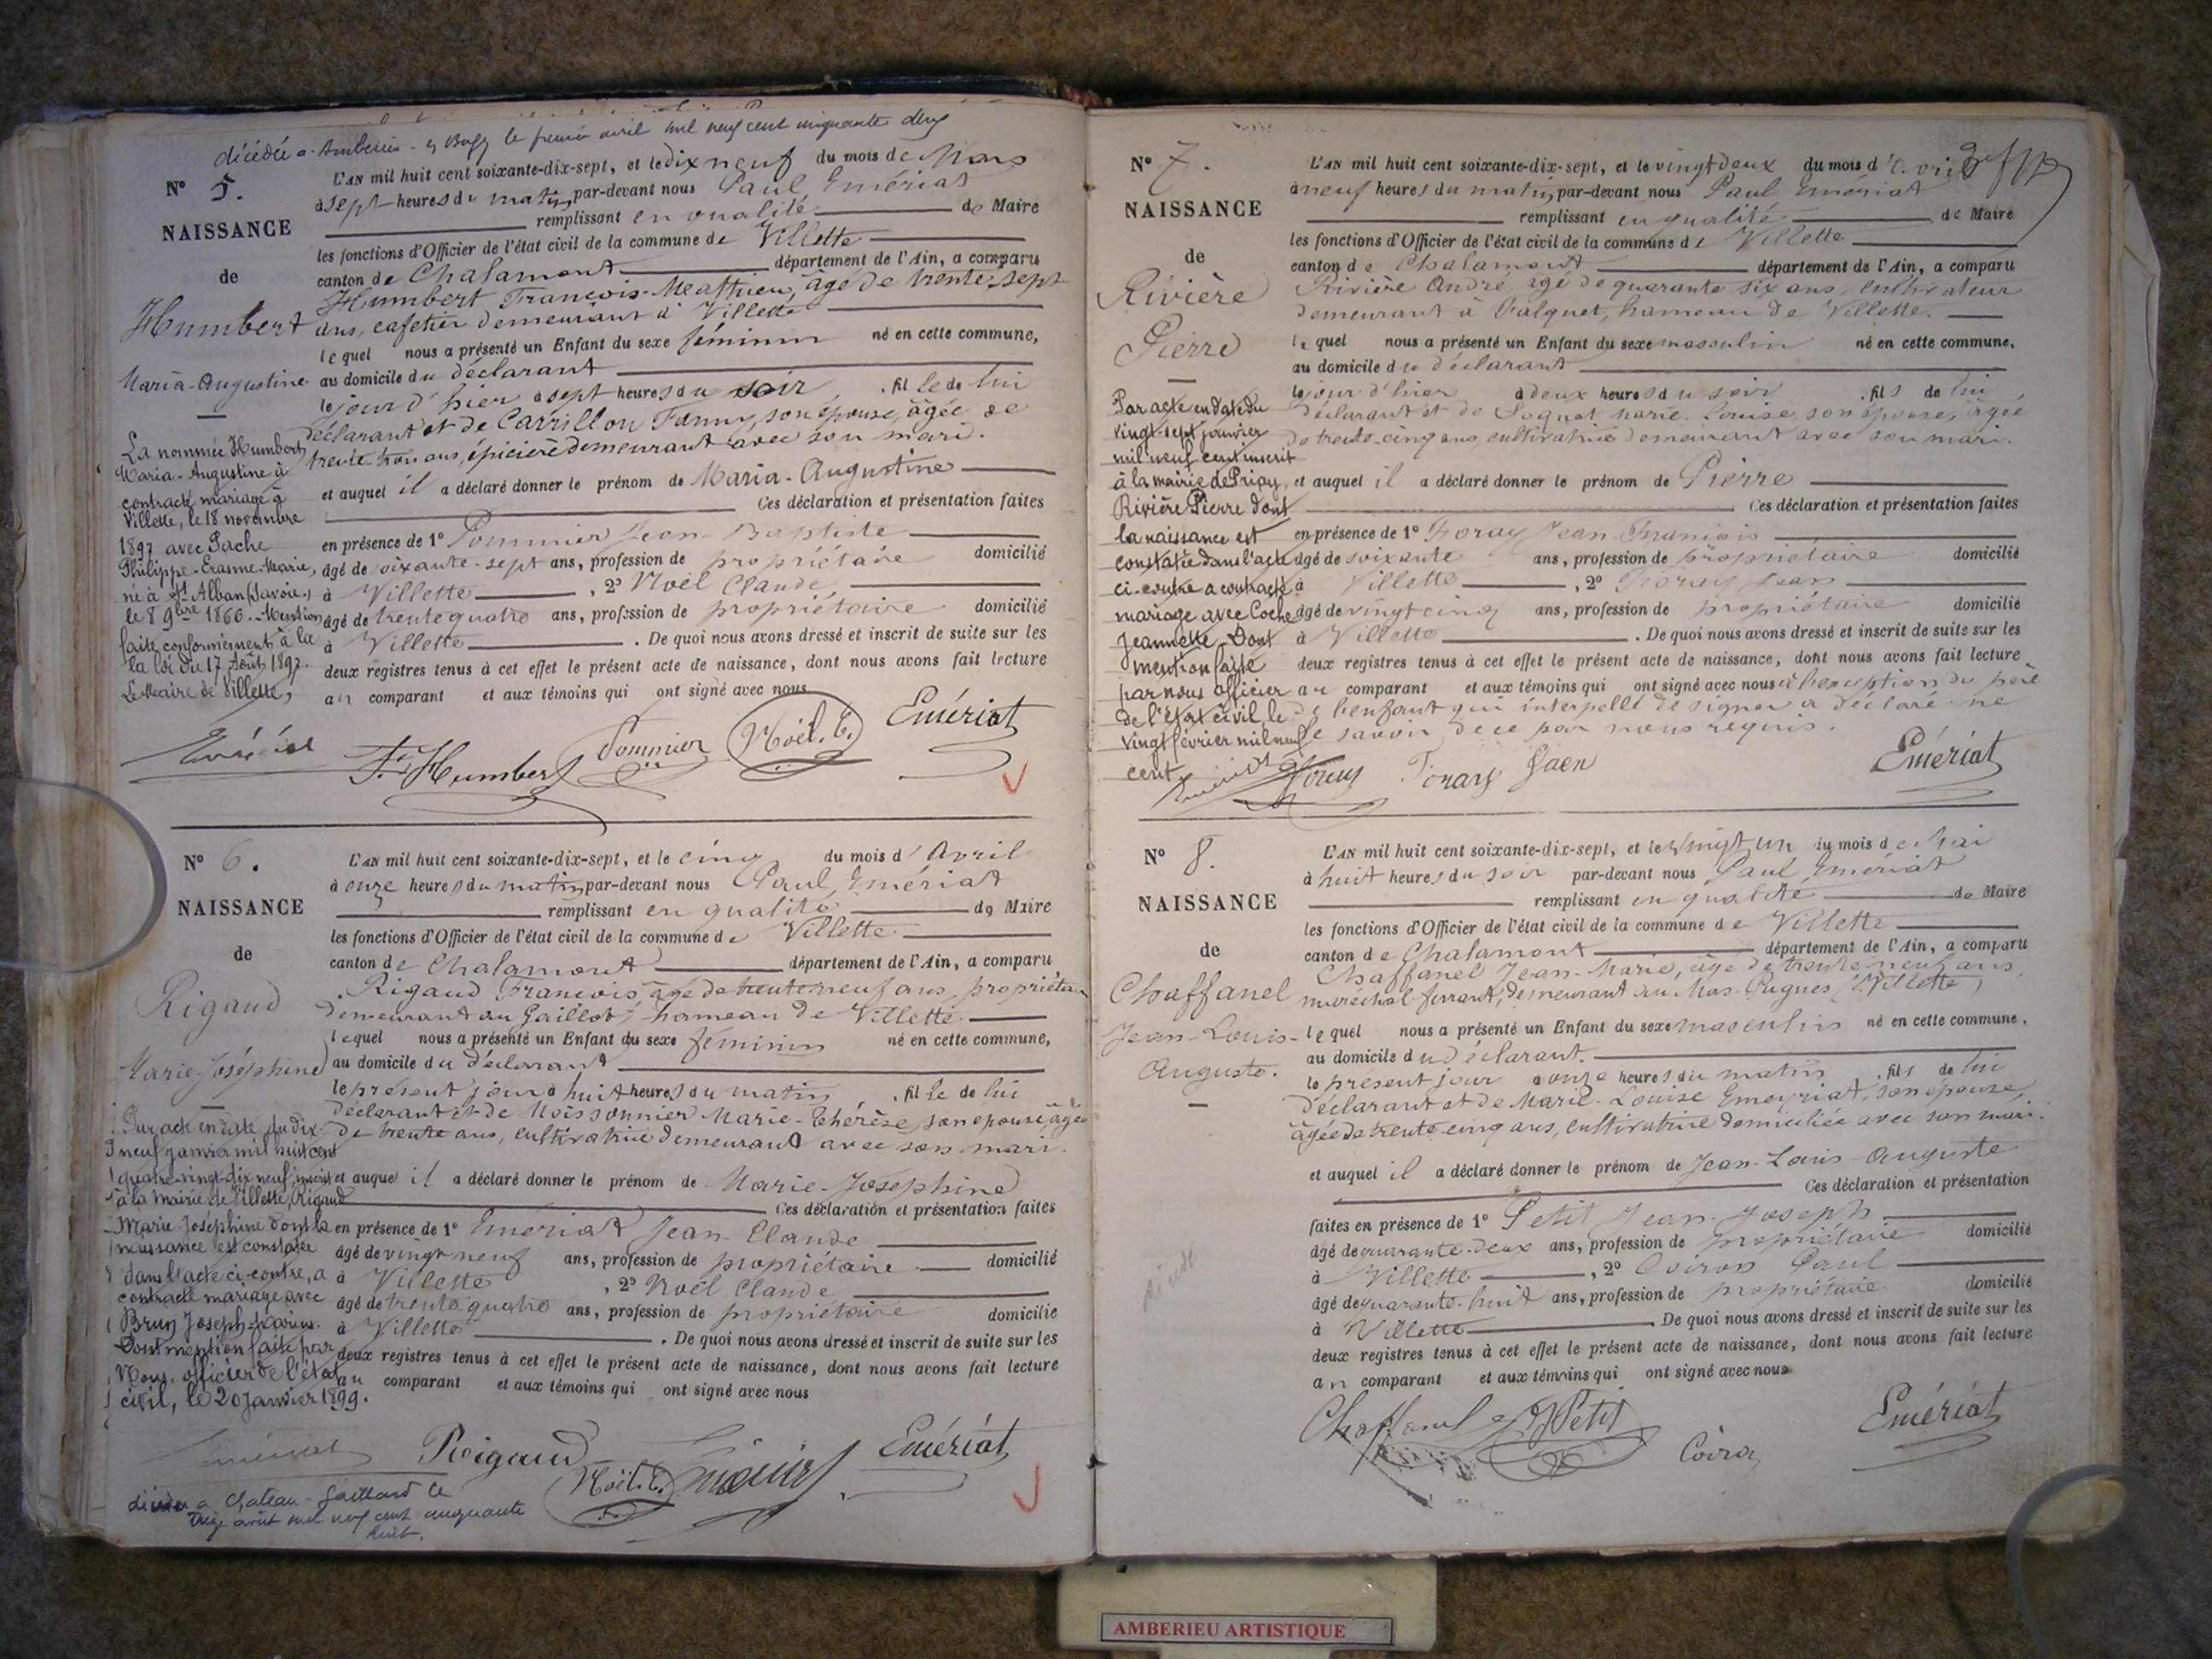 décédée a Ambérieu-en Bugey le premier avril mil neuf cent cinquante deux
N° 5.
NAISSANCE
de
Humbert
Maria-Augustine
La nommée Humbert
Maria-Augustine à
contracté mariage à
Villette, le 18 novembre
1897 avec Pache
Philippe-Erasme-Marie,
né à St Alban (Savoie)
le 8 9bre 1866. Mention
faite conformément à la
la loi du 17 Août 1897.
Le Maire de Villette,
Emériat
L'AN mil huit cent soixante-dix-sept, et le dix neuf du mois de Mars
à sept heures du matin, par-devant nous Paul Emériat
remplissant en qualité de Maire
les fonctions d'Officier de l'état civil de la commune de Villette
canton de Chalamont département de l'Ain, a comparu
Humbert François-Mathieu, âgé de trente-sept
ans, cafetier demeurant à Villette
lequel nous a présenté un Enfant du sexe féminin né en cette commune,
au domicile du déclarant
le jour d'hier à sept heures du soir . fille de lui
déclarant et de Carrillon Fanny, son épouse, âgée de
trente-trois ans, épicière demeurant avec son mari.
et auquel il a déclaré donner le prénom de Maria-Augustine
Ces déclaration et présentation faites
en présence de 1° Pommier Jean-Baptiste
âgé de soixante-sept ans, profession de propriétaire domicilié
à Villette , 2° Noël Claude
âgé de trente quatre ans, profession de propriétaire domicilié
à Villette . De quoi nous avons dressé et inscrit de suite sur les
deux registres tenus à cet effet le présent acte de naissance, dont nous avons fait lecture
au comparant et aux témoins qui ont signé avec nous
F. Humbert Pommier Noël. C. Emériat
N° 6.
NAISSANCE
de
Rigaud
Marie-Joséphine
Par acte en date du dix-
neuf janvier mil huit cent
quatre-vingt-dix neuf, inscrit
à la mairie de Villette, Rigaud
Marie-Joséphine dont la
naissance est constatée
dans l'acte ci-contre, a
contracté mariage avec
Brun Joseph-Marius.
Dont mention faite par
Nous, officier de l'état
civil, le 20 janvier 1899.
Emériat
décédée a Chateau-Gaillard le
treize août mil neuf cent cinquante
huit.
L'AN mil huit cent soixante-dix-sept, et le cinq du mois d'Avril
à onze heures du matin, par-devant nous Paul Emériat
remplissant en qualité de Maire
les fonctions d'Officier de l'état civil de la commune de Villette
canton de Chalamont département de l'Ain, a comparu
Rigaud François âgé de trente neuf ans, propriétaire
demeurant au Gaillot, hameau de Villette
lequel nous a présenté un Enfant du sexe féminin né en cette commune,
au domicile du déclarant
le présent jour à huit heures du matin . fille de lui
déclarant et de Moissonnier Marie-Thérèse, son épouse, âgée
de trente ans, cultivatrice demeurant avec son mari.
et auquel il a déclaré donner le prénom de Marie-Joséphine
Ces déclaration et présentation faites
en présence de 1° Emériat Jean-Claude
âgé de vingt-neuf ans, profession de propriétaire domicilié
à Villette , 2° Noël Claude
âgé de trente quatre ans, profession de propriétaire domicilié
à Villette . De quoi nous avons dressé et inscrit de suite sur les
deux registres tenus à cet effet le présent acte de naissance, dont nous avons fait lecture
au comparant et aux témoins qui ont signé avec nous
Rigaud Noël. C. Emériat
N° 7.
NAISSANCE
de
Rivière
Pierre
Par acte en date du
vingt-sept janvier
mil neuf cent inscrit
à la mairie de Priay,
Rivière Pierre dont
la naissance est
constatée dans l'acte
ci-contre a contracté
mariage avec Coche
Jeannette. Dont
mention faite
par nous officier
de l'état civil, le
vingt février mil neuf
cent.
Emériat
L'AN mil huit cent soixante-dix-sept, et le vingt deux du mois d'Avril
à neuf heures du matin, par-devant nous Paul Emériat
remplissant en qualité de Maire
les fonctions d'Officier de l'état civil de la commune de Villette
canton de Chalamont département de l'Ain, a comparu
Rivière André, âgé de quarante six ans, cultivateur
demeurant à hameau de Villette.
lequel nous a présenté un Enfant du sexe masculin né en cette commune,
au domicile du déclarant
le jour d'hier à deux heures du soir . fils de lui
déclarant et de Marie-Louise, son épouse, âgée
de trente-cinq ans, cultivatrice demeurant avec son mari.
et auquel il a déclaré donner le prénom de Pierre
Ces déclaration et présentation faites
en présence de 1° Foray Jean-François
âgé de soixante ans, profession de propriétaire domicilié
à Villette , 2° Foray Jean
âgé de vingt cinq ans, profession de propriétaire domicilié
à Villette . De quoi nous avons dressé et inscrit de suite sur les
deux registres tenus à cet effet le présent acte de naissance, dont nous avons fait lecture
au comparant et aux témoins qui ont signé avec nous à l'exception du père
de l'enfant qui interpellé de signer a déclaré ne
le savoir de ce par nous requis.
Foray Foray Jaen Emériat
N° 8.
NAISSANCE
de
Chaffanel
Jean-Louis-
Auguste.
L'AN mil huit cent soixante-dix-sept, et le vingt un du mois de Mai
à huit heures du soir par-devant nous Paul Emériat
remplissant en qualité de Maire
les fonctions d'Officier de l'état civil de la commune de Villette
canton de Chalamont département de l'Ain, a comparu
Chaffanel Jean-Marie, âgé de trente neuf ans,
maréchal-ferrant, demeurant au Mas-Pugues (Villette)
lequel nous a présenté un Enfant du sexe masculin né en cette commune,
au domicile du déclarant.
le présent jour à onze heures du matin . fils de lui
déclarant et de Marie-Louise Emeyriat, son épouse,
âgée de trente-cinq ans, cultivatrice domiciliée avec son mari.
et auquel il a déclaré donner le prénom de Jean-Louis-Auguste
Ces déclaration et présentation
faites en présence de 1° Petit Jean-Joseph
âgé de quarante-deux ans, profession de propriétaire domicilié
à Villette , 2° Coiron Paul
âgé de quarante-huit ans, profession de propriétaire domicilié
à Villette . De quoi nous avons dressé et inscrit de suite sur les
deux registres tenus à cet effet le présent acte de naissance, dont nous avons fait lecture
au comparant et aux témoins qui ont signé avec nous
Chaffanel J Petit Coiron Emériat
AMBERIEU ARTISTIQUE